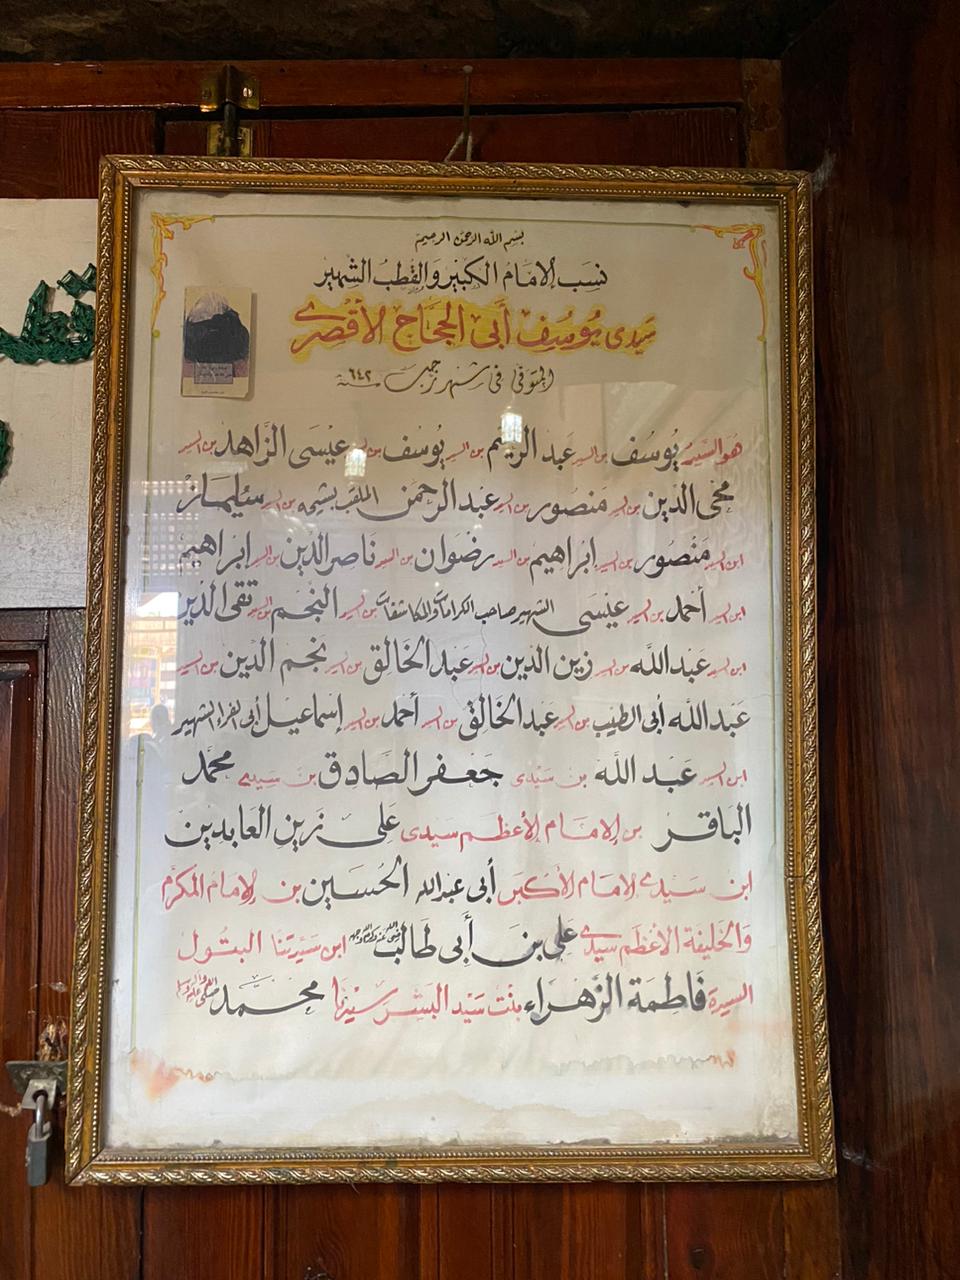 بسم الله الرحمن الرحيم
نسب الامام الكبير والقطب الشهير
سيدى يوسف أبى الحجاج الأقصرى
المتوفى فى شهر رجب سنة ٦٤٢
هو السيد يوسف بن السيد عبد الرحيم بن السيد يوسف بن السيد عيسى الزاهد بن السيد
محى الدين بن السيد منصور بن السيد عبد الرحمن الملقب بشيحه بن السيد سليمان
ابن السيد منصور بن السيد إبراهيم بن السيد رضوان بن السيد ناصر الدين بن السيد ابراهيم
ابن السيد أحمد بن السيد عيسى الشهير صاحب الكرامات والمكاشفات بن السيد النجم بن السيد تقى الدين
ابن السيد عبد الله بن السيد زين الدين بن السيد عبد الخالق بن السيد نجم الدين بن السيد
عبد الله أبى الطيب بن السيد عبد الخالق بن السيد أحمد بن السيد إسماعيل أبى الفراء الشهير
ابن السيد عبد الله بن سيدى جعفر الصادق بن سيدى محمد
الباقر بن الامام الأعظم سيدى على زين العابدين
ابن سيدى الامام الأكبر أبى عبد الله الحسين بن الامام المكرم
والخليفة الأعظم سيدى على بن أبى طالب ابن سيدتنا البتول
السيدة فاطمة الزهراء بنت سيد البشر سيدنا محمد